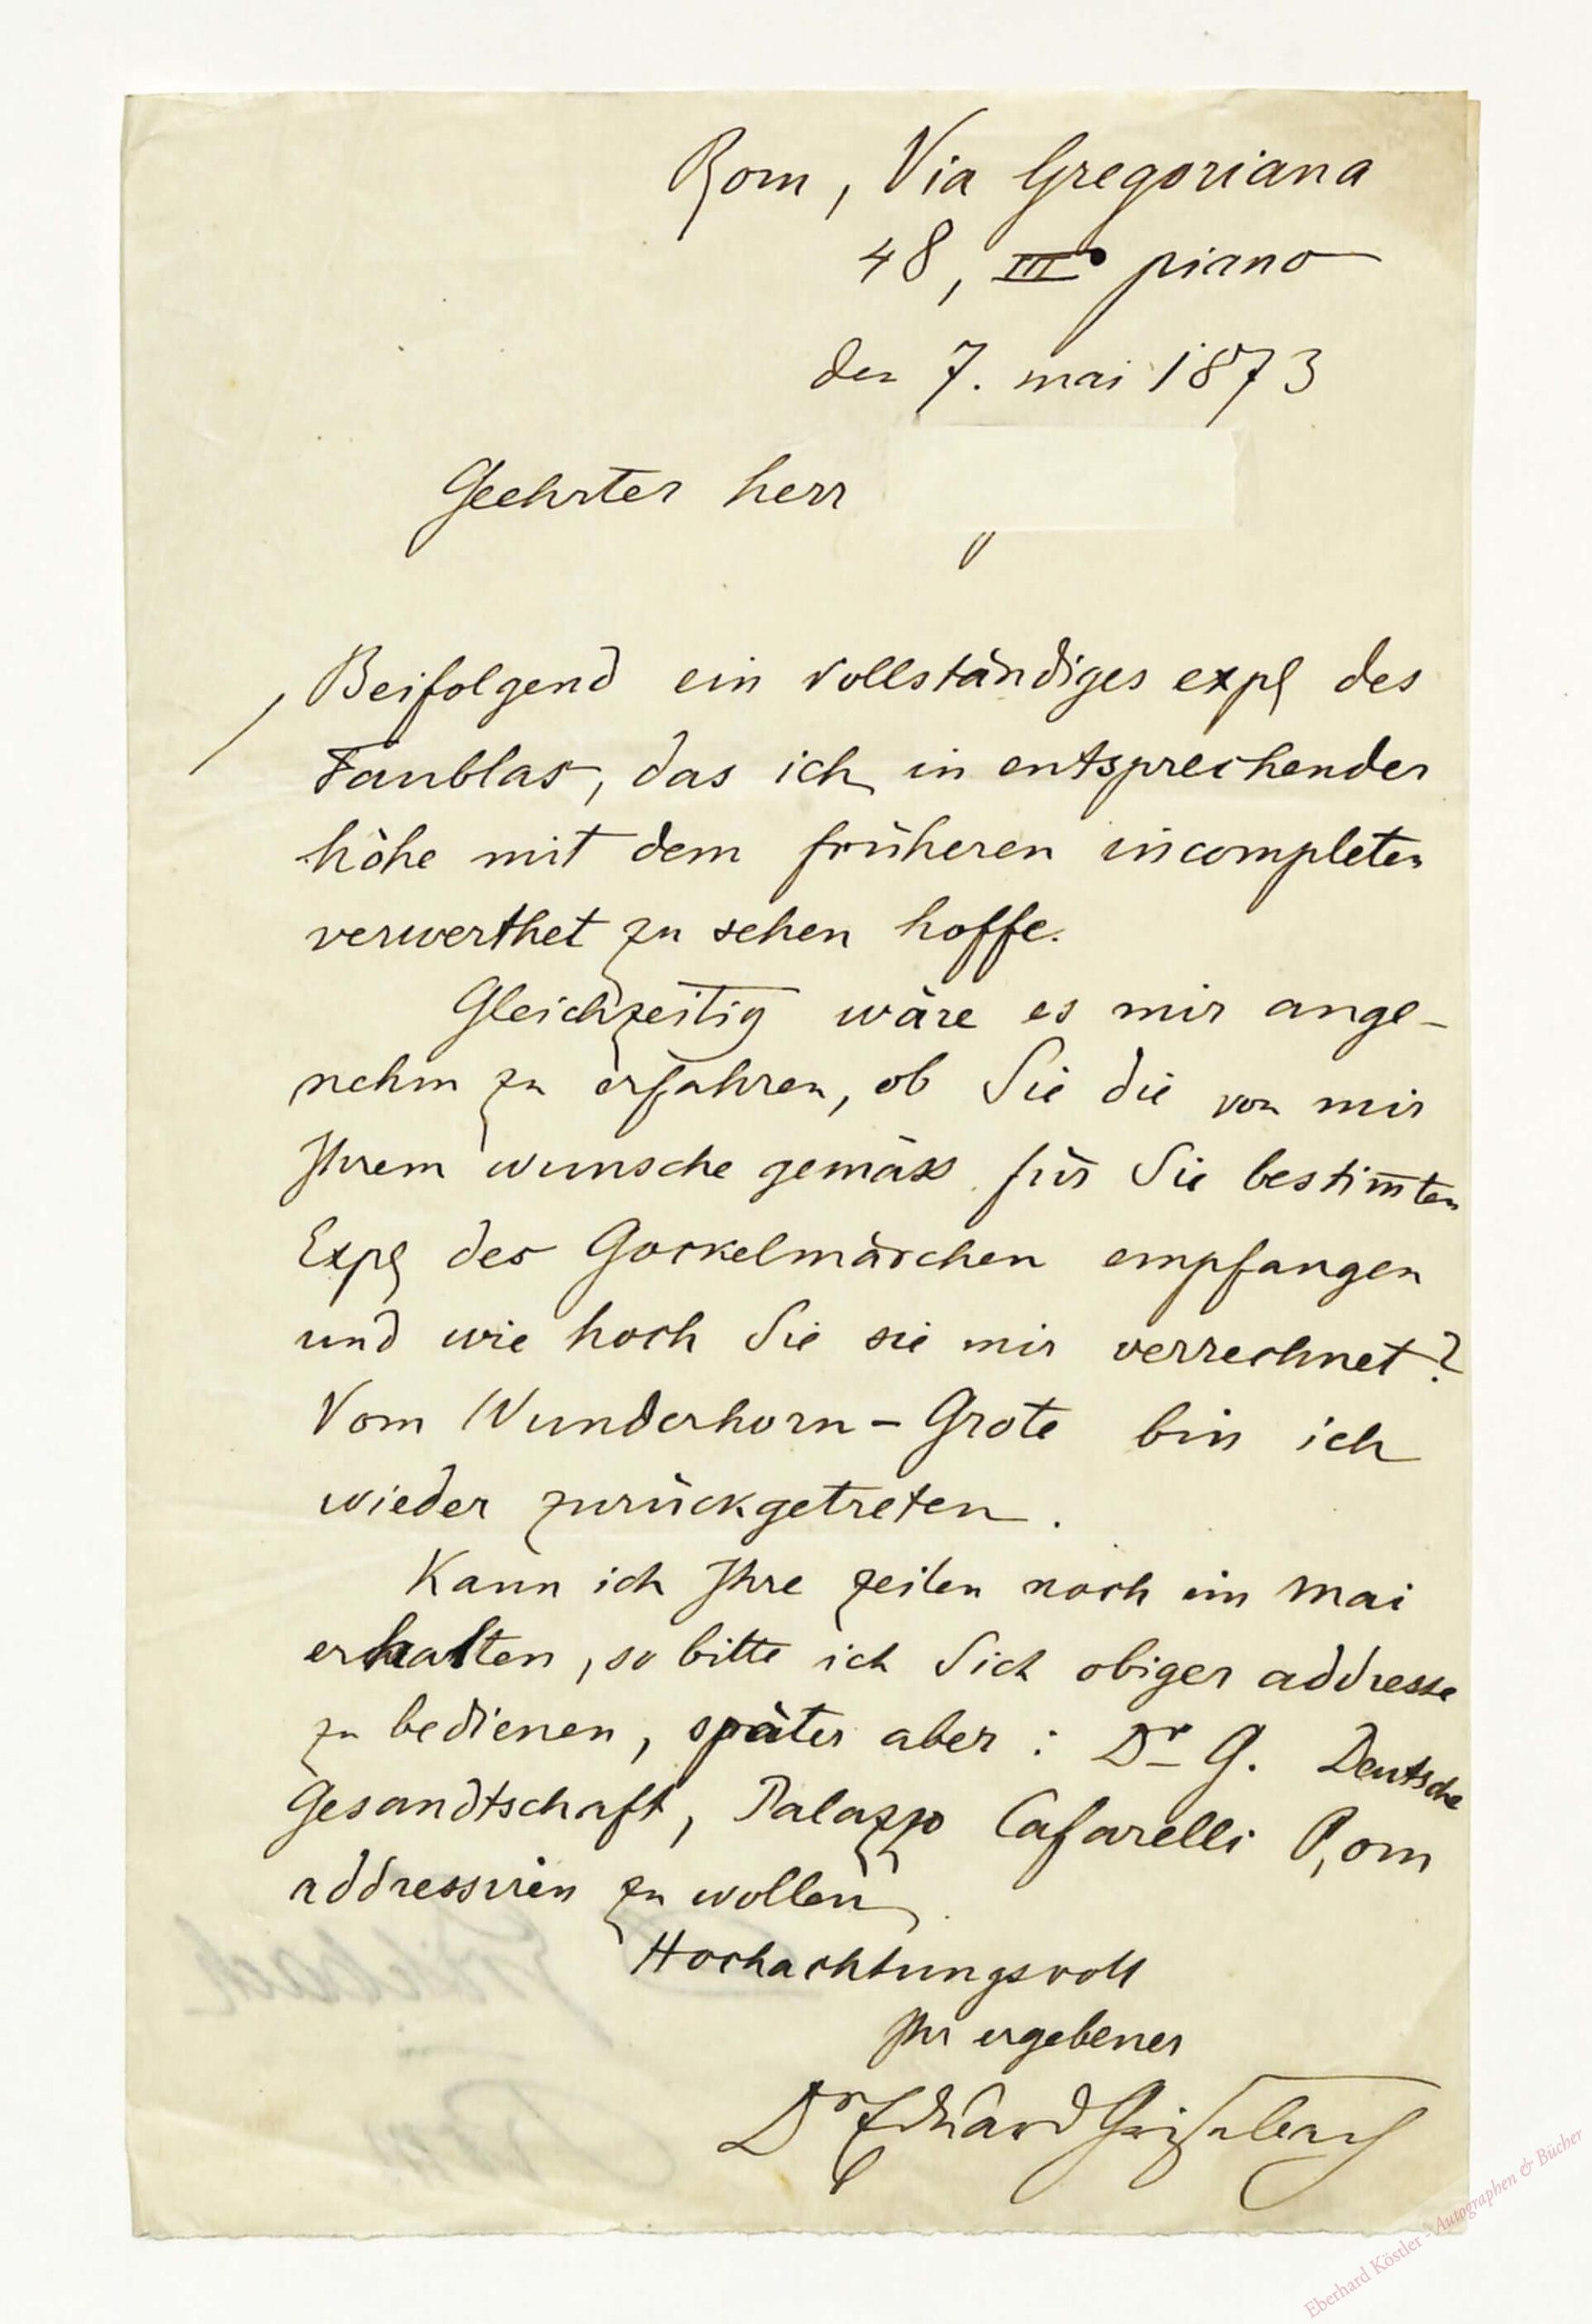 Rom, Via Gregoriana
48, III° piano
den 7. mai 1873
Geehrter herr
Beifolgend ein vollständiges expl des
Faublas, das ich in entsprechender
höhe mit dem früheren incompleten
verwerthet zu sehen hoffe.
Gleichzeitig wäre es mir ange-
nehm zu erfahren, ob Sie die von mir
Ihrem wunsche gemäss für Sie bestim̅ten
Expl des Gockelmärchen empfangen
und wie hoch Sie sie mir verrechnet?
Vom Wunderhorn-Grote bin ich
wieder zurückgetreten.
Kann ich Ihre zeilen noch im mai
erhalten, so bitte ich Sich obiger addresse
zu bedienen, später aber: Dr G. Deutsche
Gesandtschaft, Palazzo Cafarelli Rom
addressiren zu wollen.
Hochachtungsvoll
Ihr ergebener
Dr Eduard Grisebach
Eberhard Köstler - Autographen & Bücher